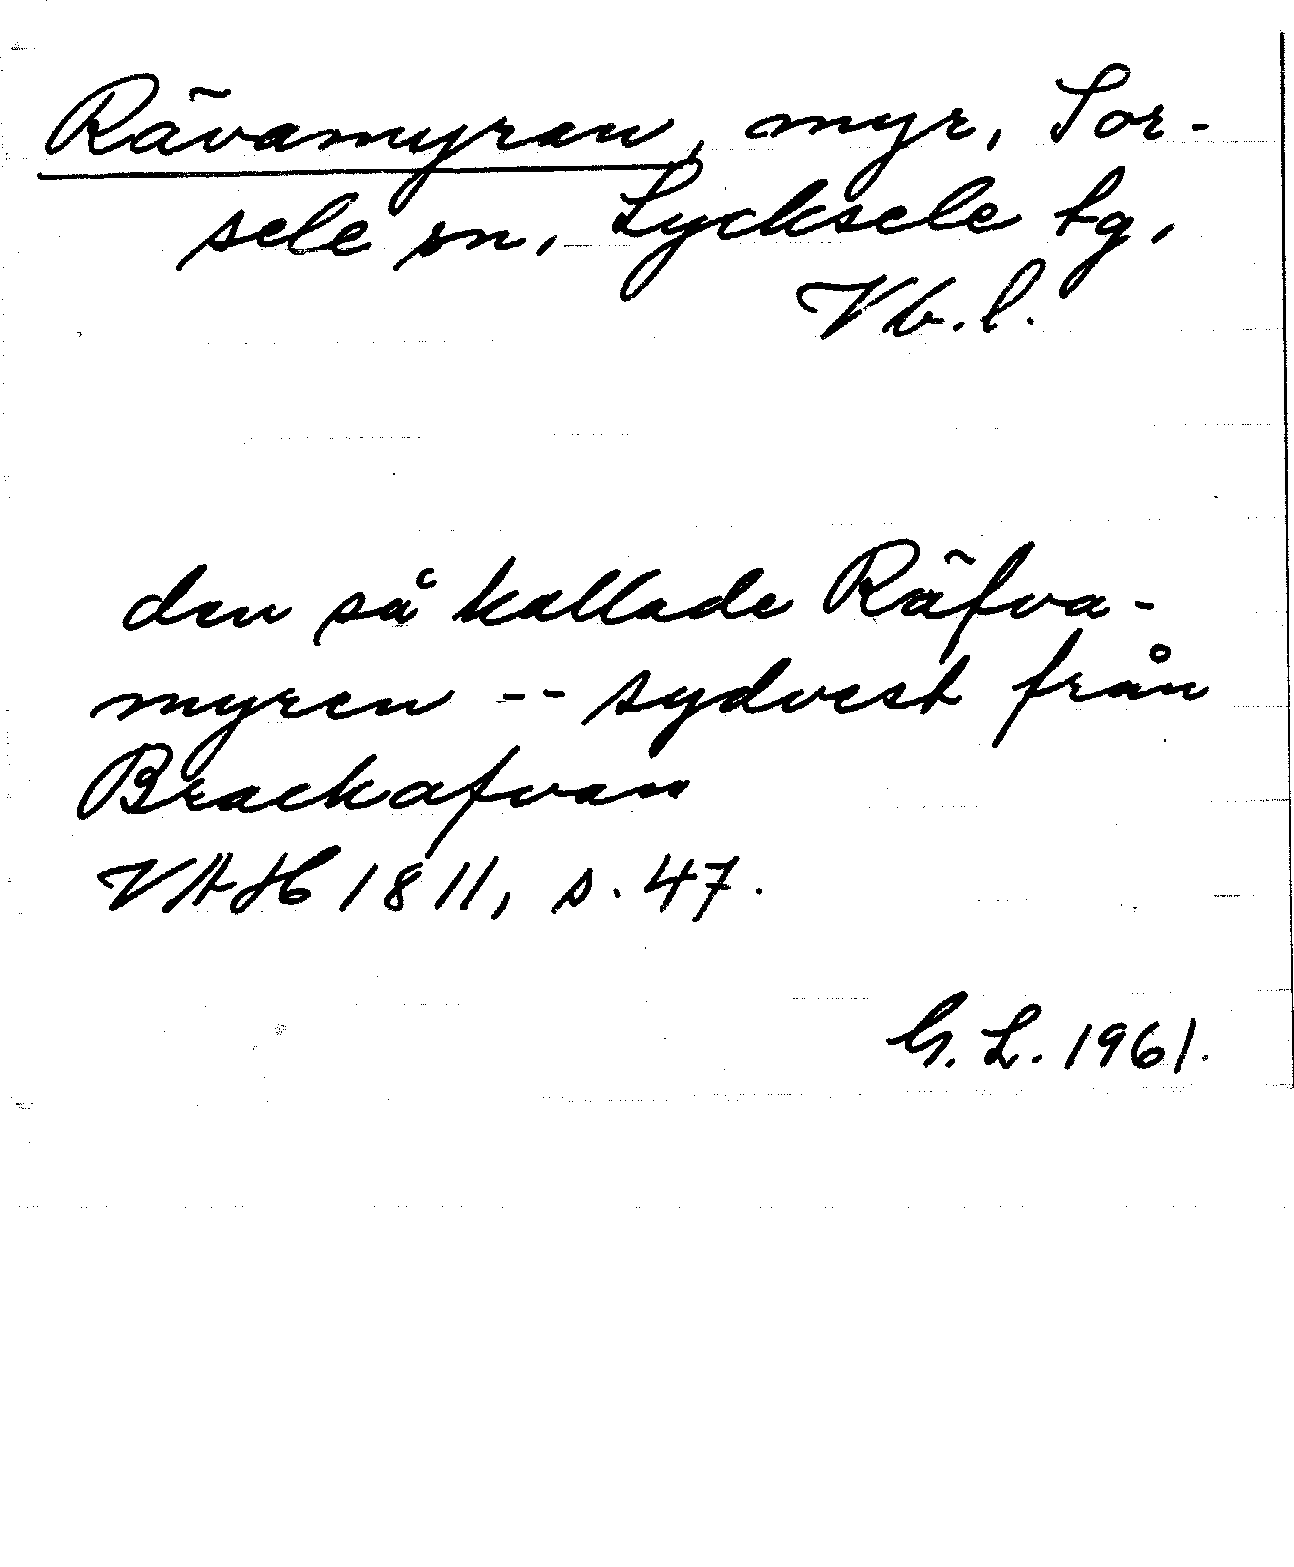 Rävamyran, myr, Sor-
sele sn, Lycksele tg,
Vb. l.
den så kallade Räfva-
myren -- sydvest från
Brackafvan
VAH 1811, s. 47.
G. L. 1961.